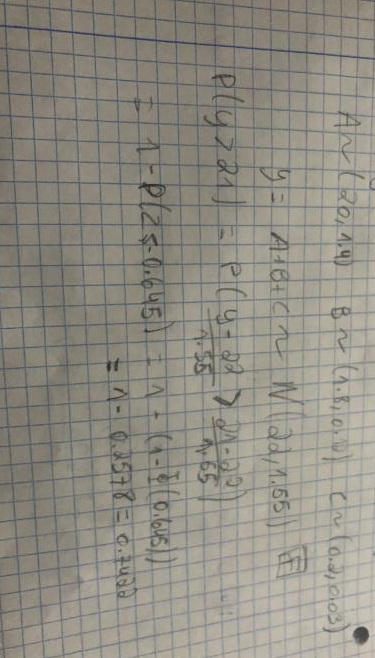 A ~ (20, 1.4) B ~ (1.8, 0.10) C ~ (0.2, 0.03)
y = A+B+C ~ N(22, 1.55)
P(y > 21) = P(y-22/1.55 > 21-22/1.55)
= 1 - P(Z ≤ -0.645) = 1 - (1 - Φ(0.645))
= 1 - 0.2578 = 0.7422